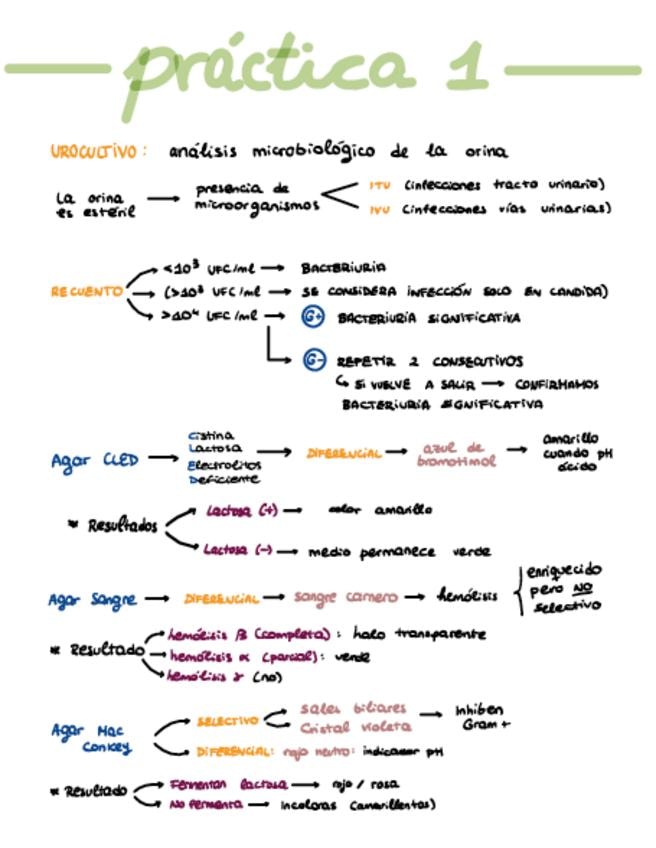 práctica 1
UROCULTIVO: análisis microbiológico de la orina
La orina es estéril → presencia de microorganismos
ITU (infecciones tracto urinario)
IVU (infecciones vías urinarias)
RECUENTO
<10³ UFC/ml → BACTERIURIA
(>10³ UFC/ml → SE CONSIDERA INFECCIÓN SOLO EN CANDIDA)
>10⁴ UFC/ml → G+ BACTERIURIA SIGNIFICATIVA
G- REPETIR 2 CONSECUTIVOS
↳ SI VUELVE A SALIR → CONFIRMAMOS
BACTERIURIA SIGNIFICATIVA
Agar CLED →
Cistina
Lactosa
Electrolitos
Deficiente
→ DIFERENCIAL → azul de bromotimol → amarillo cuando pH ácido
* Resultados
Lactosa (+) → color amarillo
Lactosa (-) → medio permanece verde
Agar Sangre → DIFERENCIAL → sangre carnero → hemólisis
enriquecido
pero NO
selectivo
* Resultado
hemólisis β (completa): halo transparente
hemólisis α (parcial): verde
hemólisis γ (no)
Agar Mac Conkey
SELECTIVO
sales biliares
Cristal violeta
→ Inhiben Gram +
DIFERENCIAL: rojo neutro: indicador pH
* Resultado
Fermentan lactosa → rojo / rosa
No fermenta → Incoloras (amarillentas)